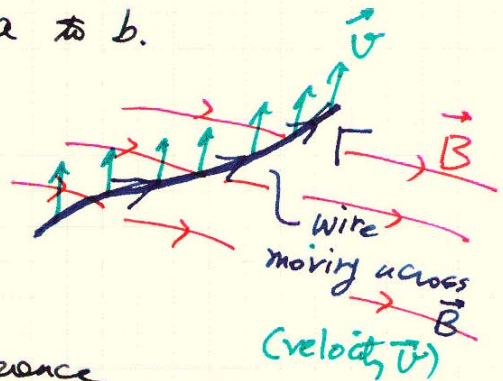 a to b.
v⃗
Γ
B⃗
wire
moving across
B⃗
(velocity v⃗)